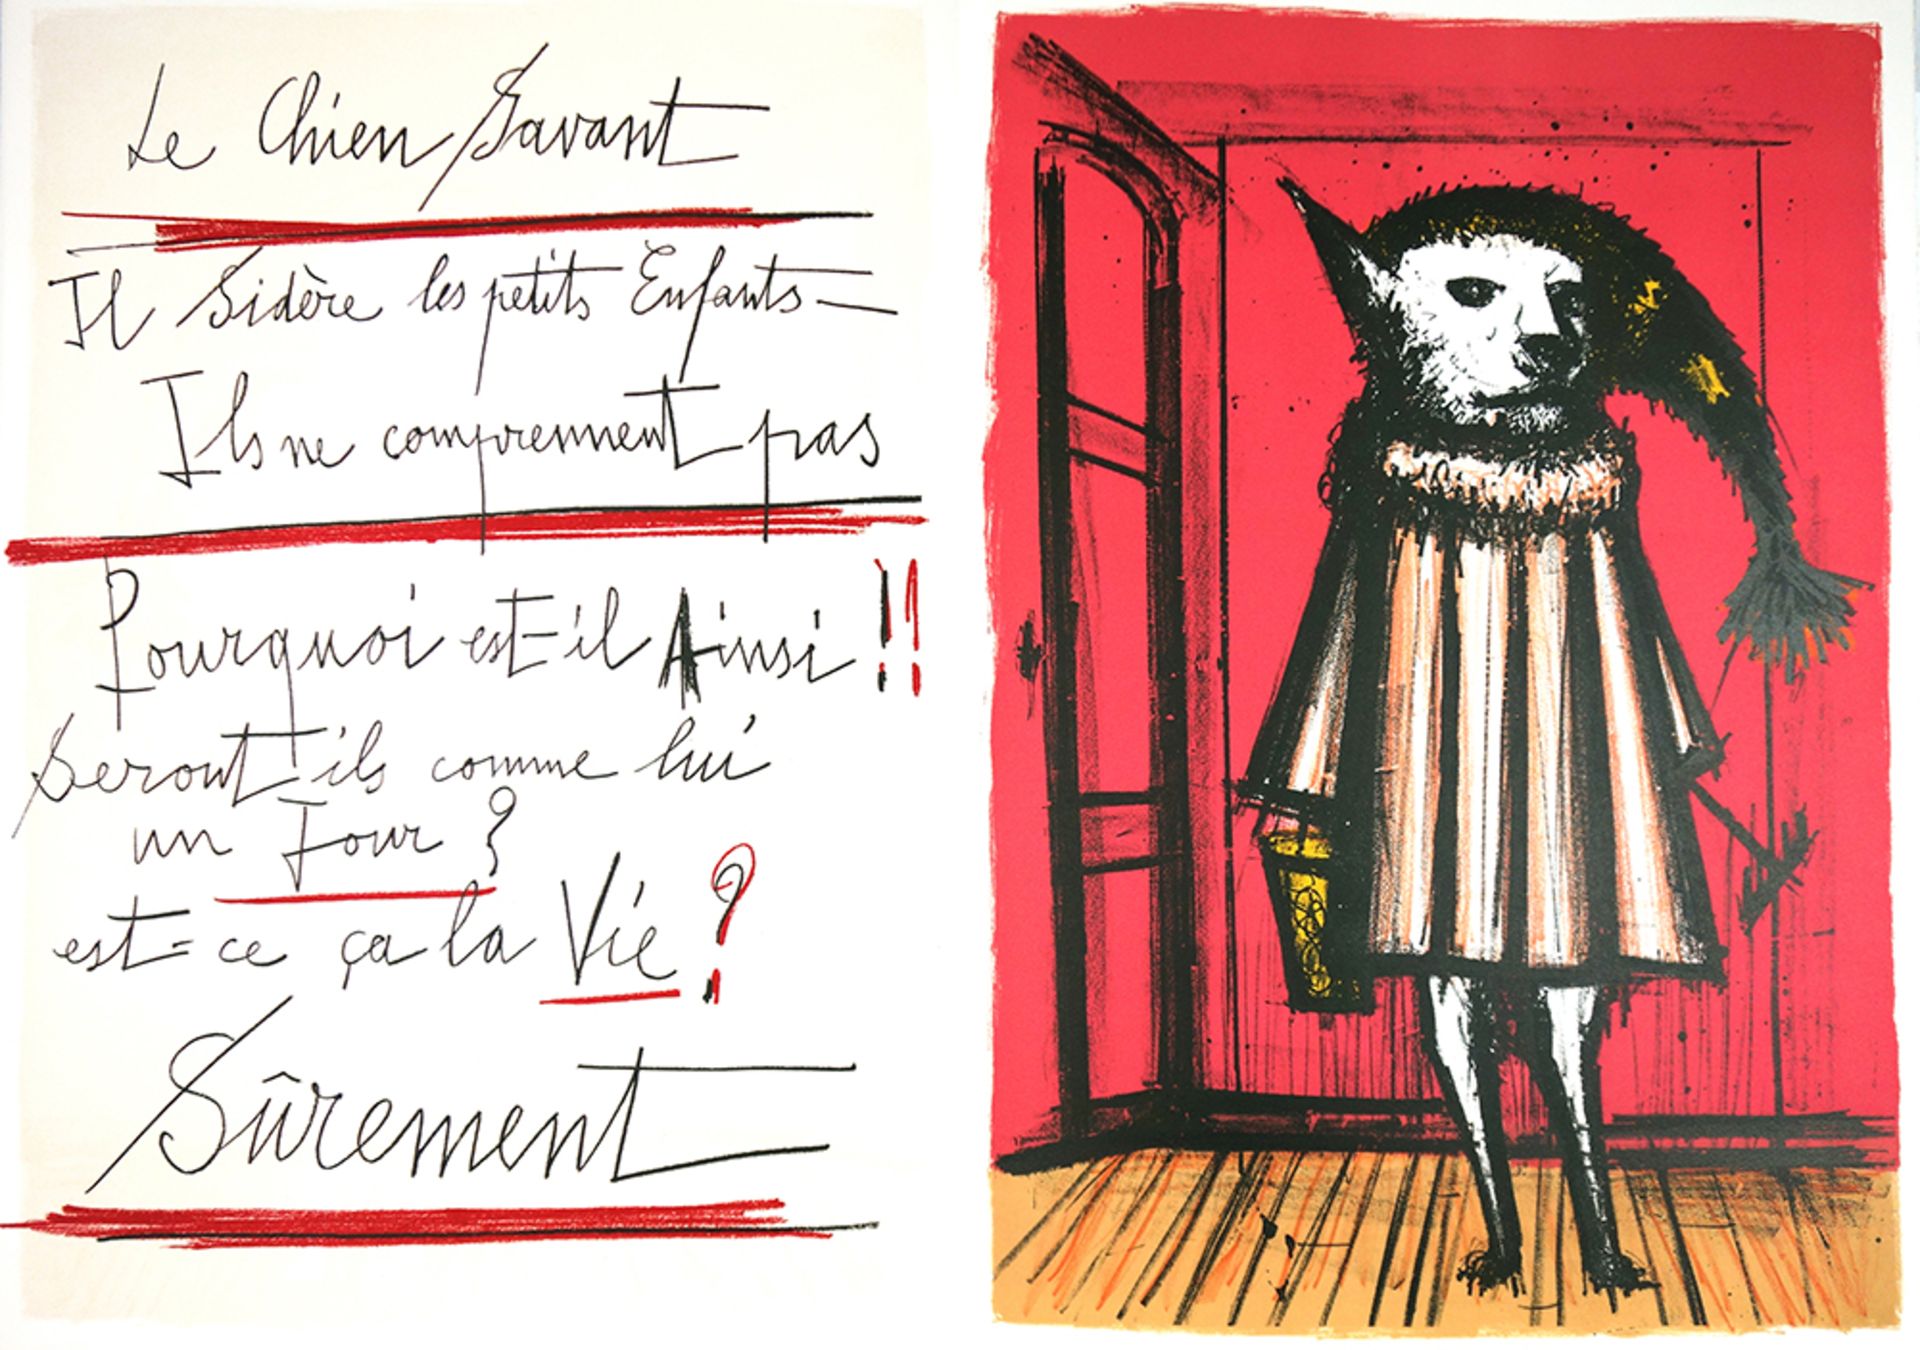 Le Chien Savant
Il Sidère les petits Enfants
Ils ne comprennent pas
Pourquoi est-il Ainsi !!
Seront ils comme lui
un Jour ?
est-ce ça la Vie ?
Sûrement